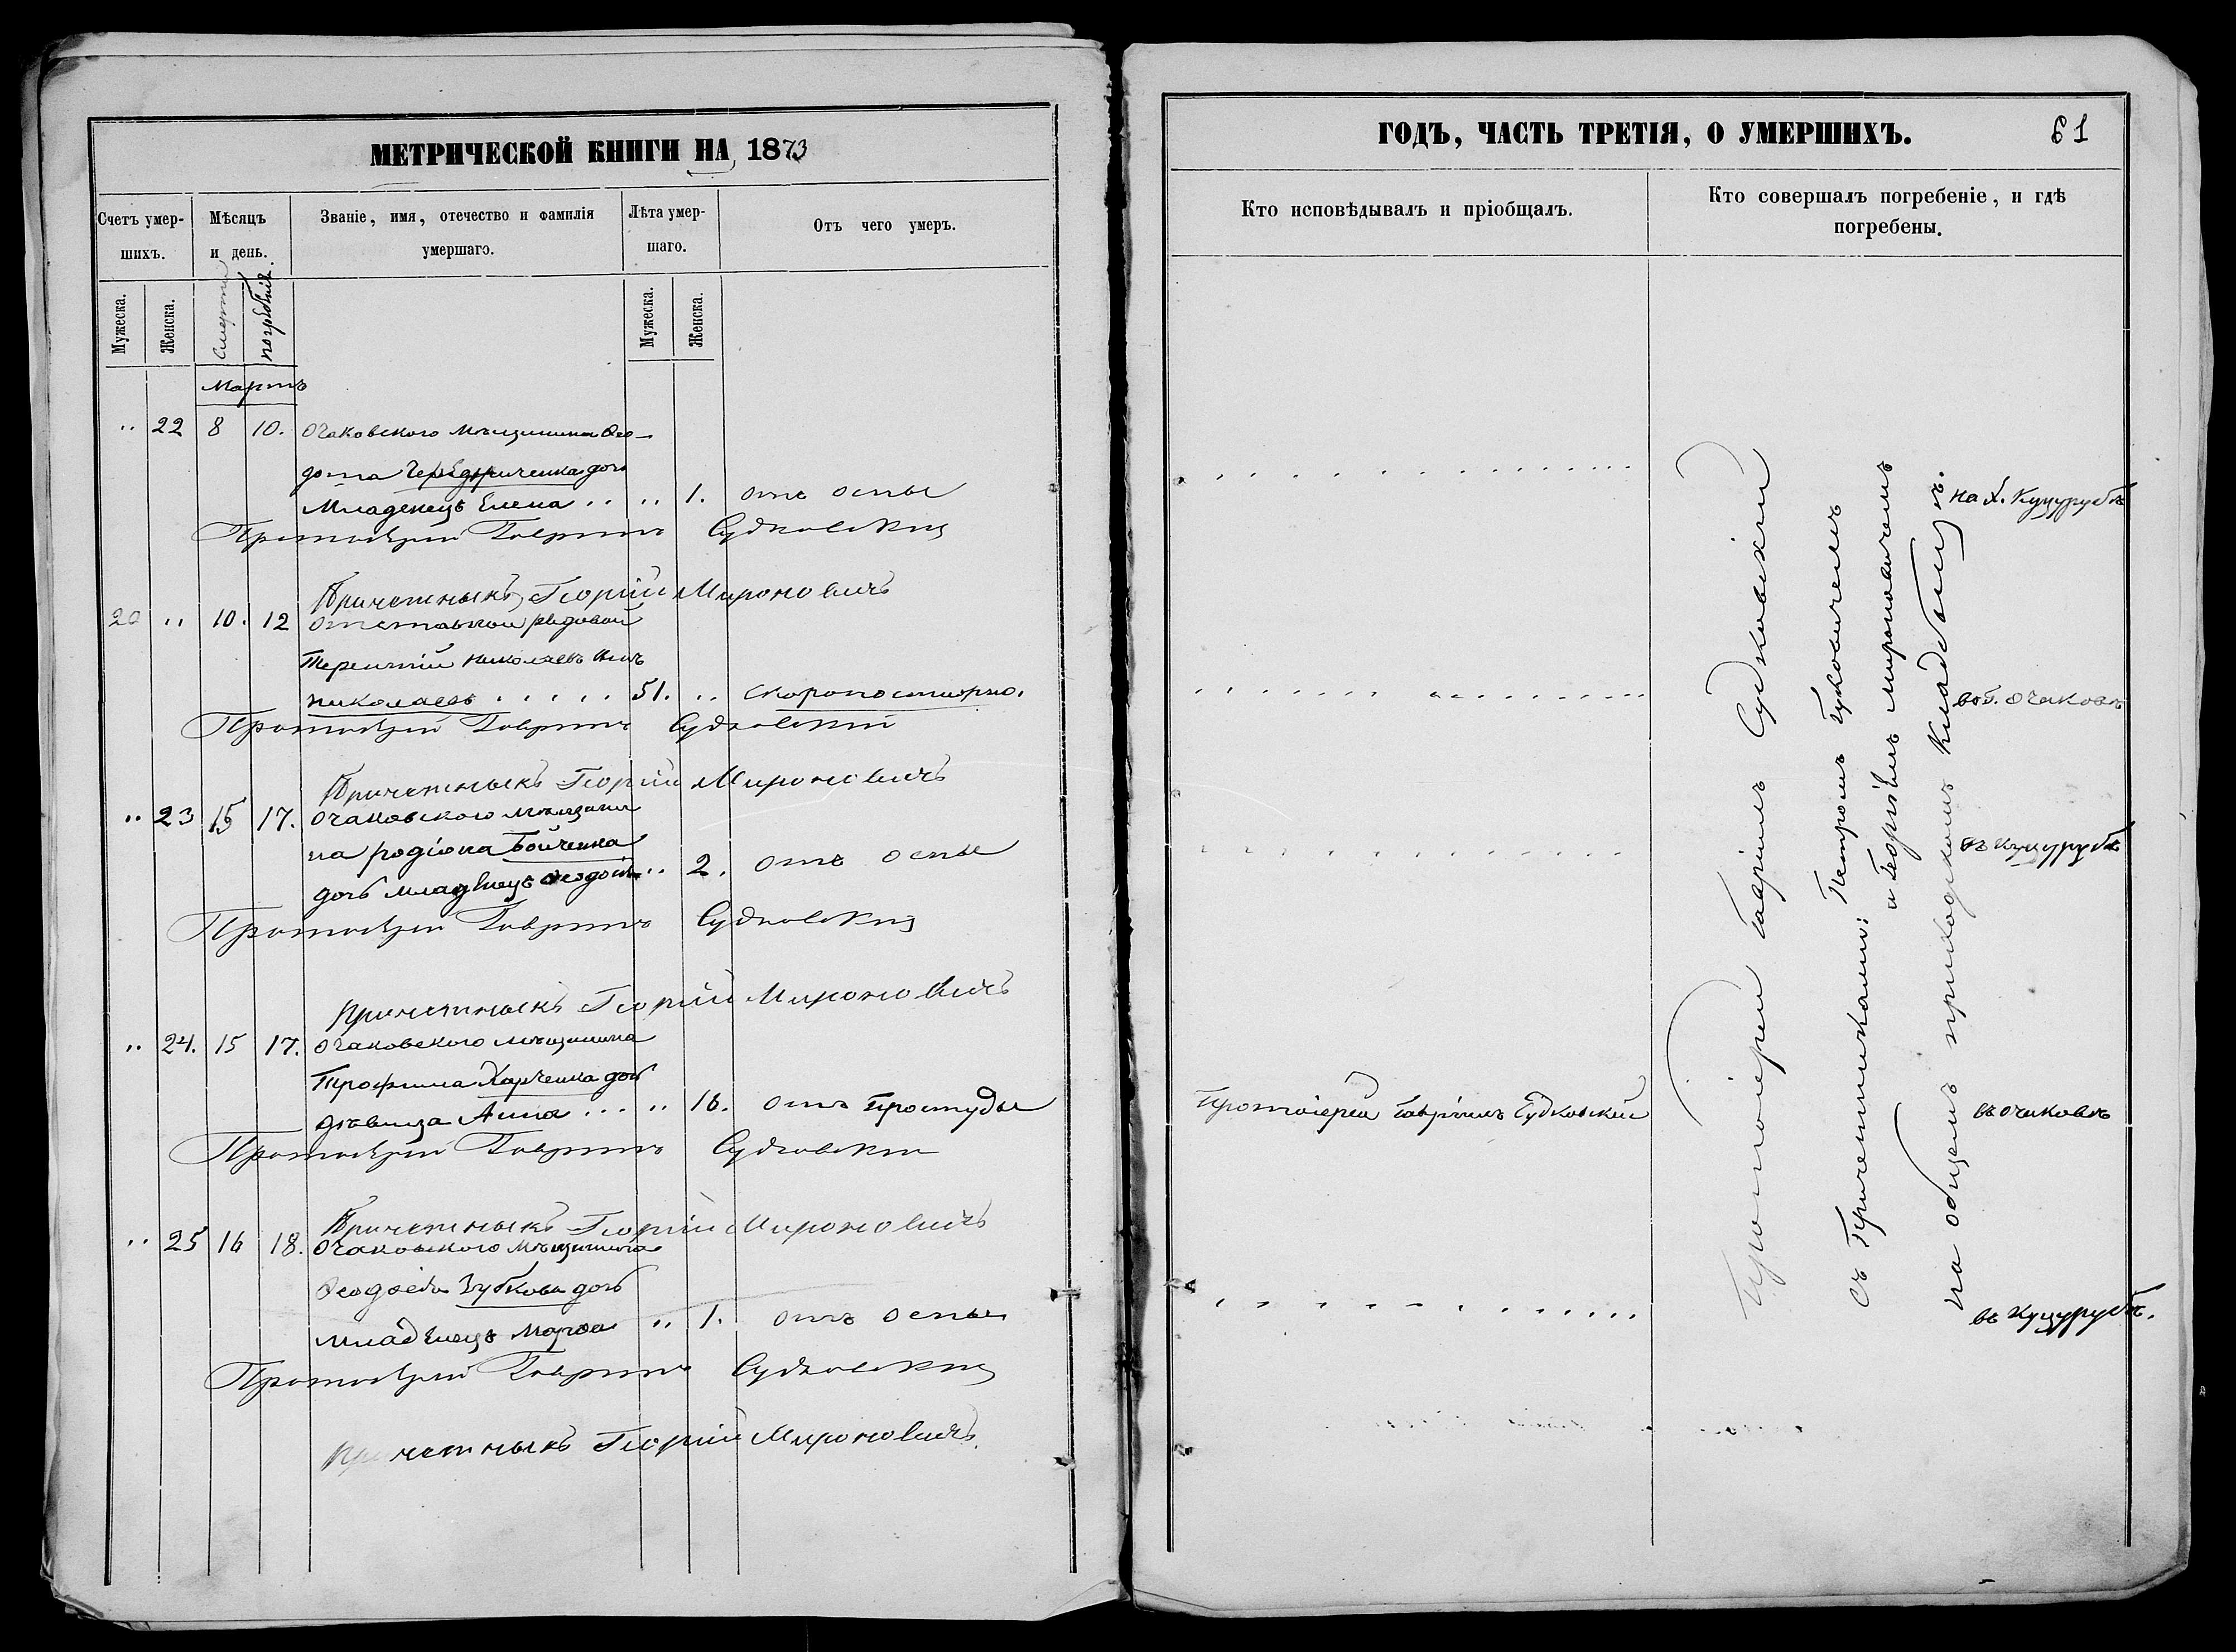 МЕТРИЧЕСКОЙ КНИГИ НА 1873
Счетъ умершихъ.
Мѣсяцъ и день.
Званіе, имя, отечество и фамилія умершаго.
Лѣта умершаго.
Отъ чего умеръ.
Мужеска.
Женска.
Смерти
погребенія.
Мужеска.
Женска.
Мартъ
" 22 8 10. Очаковскаго мѣщанина Ѳео-
дота дочь
Младенецъ Елена .. " 1. отъ оспы
Протоіерей Гавріилъ Судковскій
Причетникъ Георгій Мироновичъ
20 " 10. 12 Отставной рядовой
Терентій Николаевъ сынъ
Николаевъ . . . . . 51. " скоропостижно.
Протоіерей Гавріилъ Судковскій
Причетникъ Георгій Мироновичъ
" 23 15 17. Очаковскаго мѣщани
на Родіона Бойченка
дочь младенецъ .. 2. отъ оспы
Протоіерей Гавріилъ Судковскій
Причетникъ Георгій Мироновичъ
" 24. 15 17. Очаковскаго мѣщанина
Трофима Харченка дочь
дѣвица Анна ... " 16. отъ простуды
Протоіерей Гавріилъ Судковскій
Причетникъ Георгій Мироновичъ
" 25 16 18. Очаковскаго мѣщанина
Зубкова дочь
младенецъ Марѳа " 1. отъ оспы
Протоіерей Гавріилъ Судковскій
Причетникъ Георгій Мироновичъ
ГОДЪ, ЧАСТЬ ТРЕТІЯ, О УМЕРШИХЪ.
61
Кто исповѣдывалъ и пріобщалъ.
Кто совершалъ погребеніе, и гдѣ погребены.
на х. Куцурубѣ
въ г. Очаковѣ
въ Куцурубѣ
Протоіерей Гавріилъ Судковскій
въ Очаковѣ
въ Куцурубѣ.
Протоіерей Гавріилъ Судковскій
съ Причетниками: Петромъ
и Георгіемъ Мироновичемъ
на общемъ приходскомъ кладбищѣ.